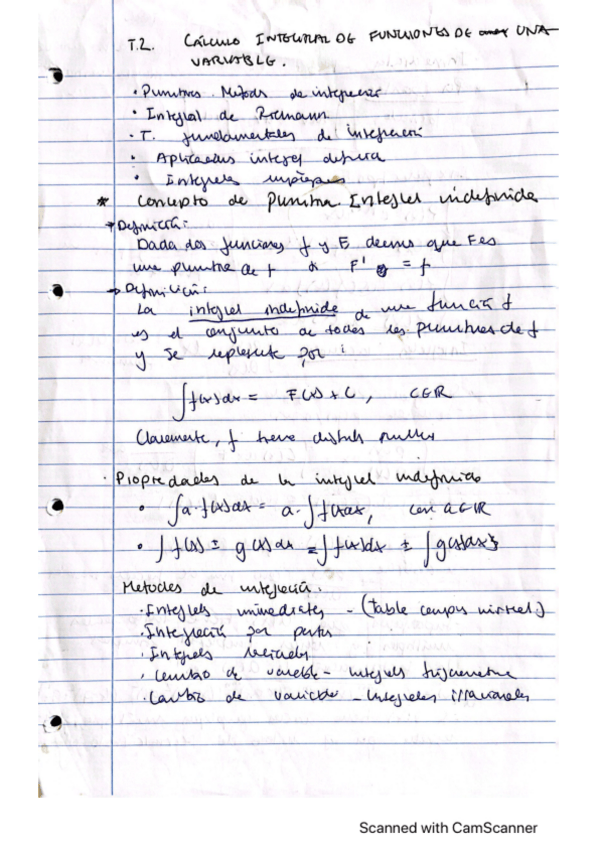 T.2. CÁLCULO INTEGRAL DE FUNCIONES DE UNA
VARIABLE.
· Primitivas. Métodos de integración
· Integral de Riemann
· T. fundamentales de integración
· Aplicaciones integral definida
· Integrales impropias
* Concepto de Primitiva. Integral indefinida
→ Definición:
Dada dos funciones f y F decimos que F es
una primitiva de f si F' = f
→ Definición:
La integral indefinida de una función f
es el conjunto de todas las primitivas de f
y se representa por:
∫f(x)dx = F(x) + C, C∈ℝ
Claramente, f tiene
· Propiedades de la integral indefinida
· ∫a·f(x)dx = a·∫f(x)dx, con a∈ℝ
· ∫f(x) ± g(x)dx = ∫f(x)dx ± ∫g(x)dx}
Métodos de integración:
· Integrales inmediatas - (Tabla campus virtual)
· Integración por partes
· Integrales racionales
· Cambio de variable - integrales trigonométricas
· Cambio de variable - Integrales irracionales
Scanned with CamScanner